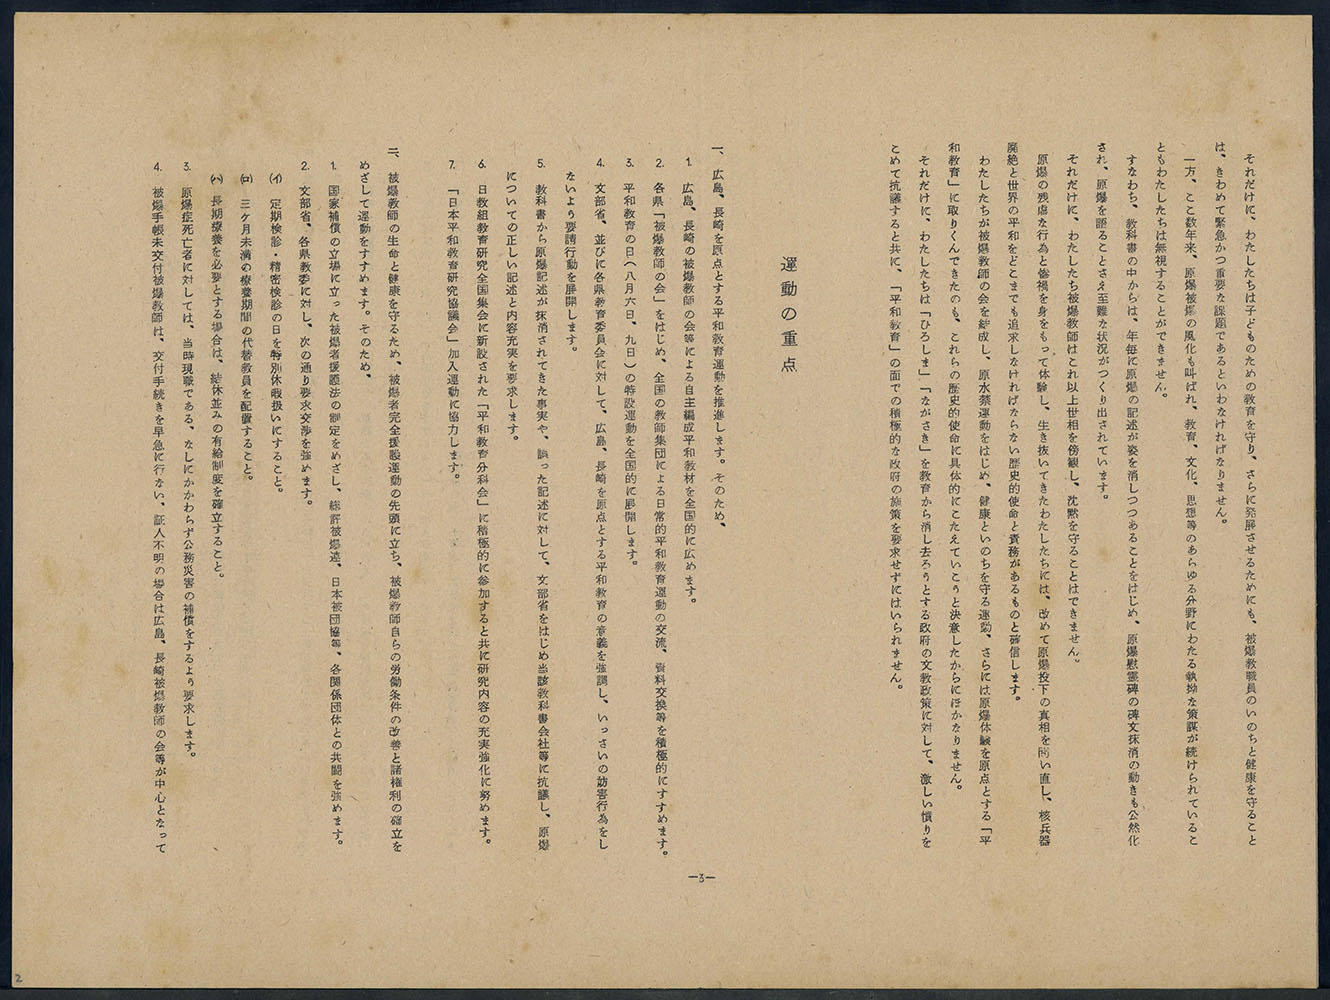 それだけに、わたしたちは子どものための教育を守り、さらに発展させるためにも、被爆教職員のいのちと健康を守ること
は、きわめて緊急かつ重要な課題であるといわなければなりません。
一方、ここ数年来、原爆被爆の風化も叫ばれ、教育、文化、思想等のあらゆる分野にわたる執拗な策謀が続けられているこ
ともわたしたちは無視することができません。
すなわち、教科書の中からは、年毎に原爆の記述が姿を消しつつあることをはじめ、原爆慰霊碑の碑文抹消の動きも公然化
され、原爆を語ることさえ至難な状況がつくり出されています。
それだけに、わたしたち被爆教師はこれ以上世相を傍観し、沈黙を守ることはできません。
原爆の残虐な行為と惨禍を身をもって体験し、生き抜いてきたわたしたちには、改めて原爆投下の真相を問い直し、核兵器
廃絶と世界の平和をどこまでも追求しなければならない歴史的使命と責務があるものと確信します。
わたしたちが被爆教師の会を結成し、原水禁運動をはじめ、健康といのちを守る運動、さらには原爆体験を原点とする「平
和教育」に取りくんできたのも、これらの歴史的使命に具体的にこたえていこうと決意したからにほかなりません。
それだけに、わたしたちは「ひろしま」「ながさき」を教育から消し去ろうとする政府の文教政策に対して、激しい憤りを
こめて抗議すると共に、「平和教育」の面での積極的な政府の施策を要求せずにはいられません。
運動の重点
一、広島、長崎を原点とする平和教育運動を推進します。そのため、
1. 広島、長崎の被爆教師の会等による自主編成平和教材を全国的に広めます。
2. 各県「被爆教師の会」をはじめ、全国の教師集団による日常的平和教育運動の交流、資料交換等を積極的にすすめます。
3. 平和教育の日（八月六日、九日）の特設運動を全国的に展開します。
4. 文部省、並びに各県教育委員会に対して、広島、長崎を原点とする平和教育の意義を強調し、いっさいの妨害行為をし
ないよう要請行動を展開します。
5. 教科書から原爆記述が抹消されてきた事実や、誤った記述に対して、文部省をはじめ当該教科書会社等に抗議し、原爆
についての正しい記述と内容充実を要求します。
6. 日教組教育研究全国集会に新設された「平和教育分科会」に積極的に参加すると共に研究内容の充実強化に努めます。
7. 「日本平和教育研究協議会」加入運動に協力します。
二、被爆教師の生命と健康を守るため、被爆者完全援護運動の先頭に立ち、被爆教師自らの労働条件の改善と諸権利の確立を
めざして運動をすすめます。そのため、
1. 国家補償の立場に立った被爆者援護法の制定をめざし、総評被爆連、日本被団協等、各関係団体との共闘を強めます。
2. 文部省、各県教委に対し、次の通り要求交渉を強めます。
(イ) 定期検診・精密検診の日を特別休暇扱いにすること。
(ロ) 三ケ月未満の療養期間の代替教員を配置すること。
(ハ) 長期療養を必要とする場合は、結休並みの有給制度を確立すること。
3. 原爆症死亡者に対しては、当時現職である、なしにかかわらず公務災害の補償をするよう要求します。
4. 被爆手帳未交付被爆教師は、交付手続きを早急に行ない、証人不明の場合は広島、長崎被爆教師の会等が中心となって
—3—
2